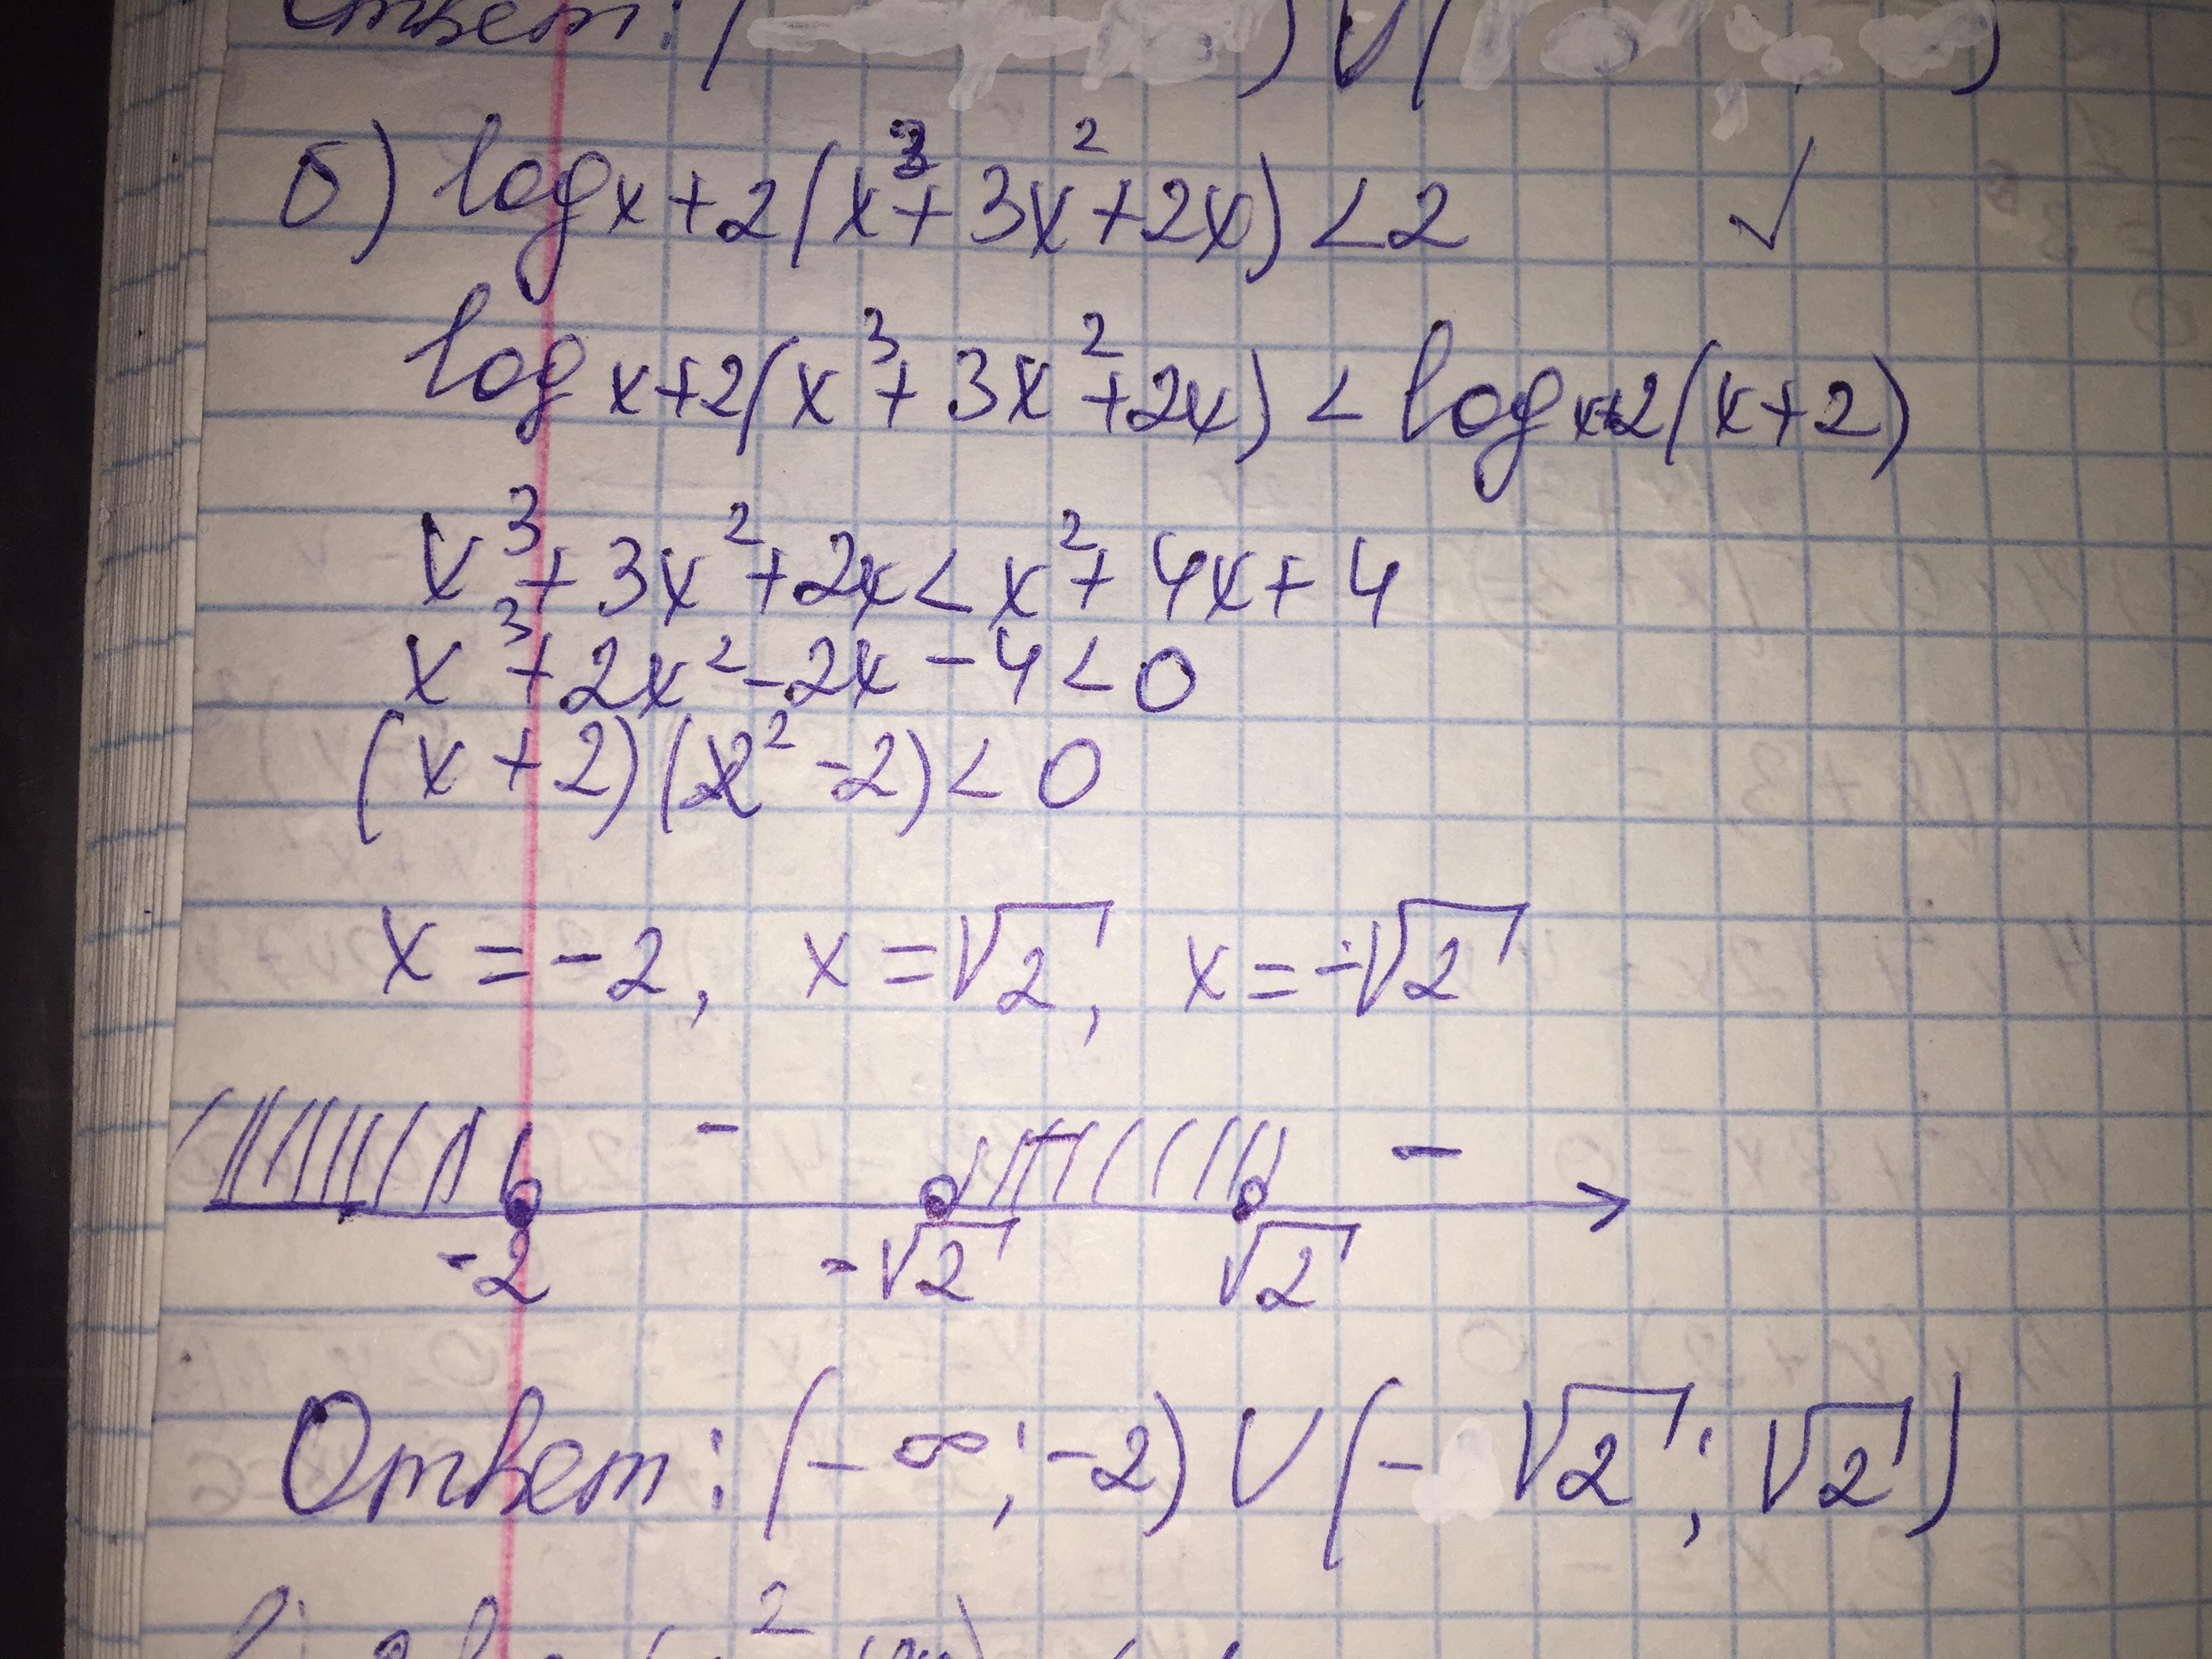 Ответ: ( ) ∪ ( )
б) log x+2 (x³ + 3x² + 2x) < 2 ✓
log x+2 (x³ + 3x² + 2x) < log x+2 (x+2)
x³ + 3x² + 2x < x² + 4x + 4
x³ + 2x² - 2x - 4 < 0
(x + 2)(x² - 2) < 0
x = -2, x = √2, x = -√2
- -
-2 -√2 √2
Ответ: (-∞; -2) ∪ (-√2; √2)